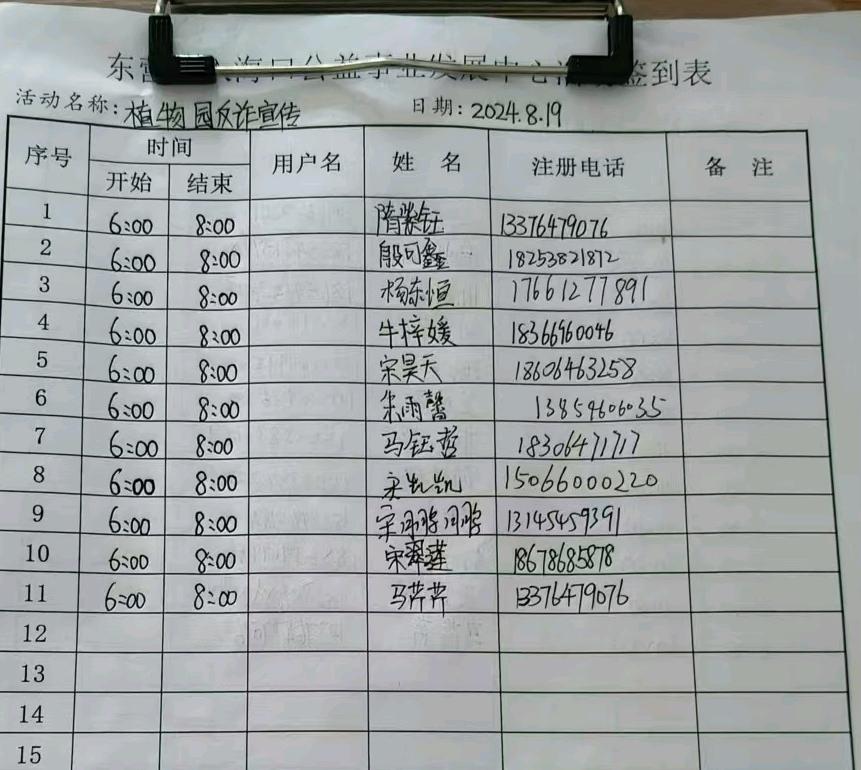 东营 海口公益事业发展中心活动签到表
活动名称:植物园反诈宣传 日期:2024.8.19
序号 时间 用户名 姓 名 注册电话 备 注
开始 结束
1 6:00 8:00 隋紫钰 13376479076
2 6:00 8:00 殷可鑫 18253821872
3 6:00 8:00 杨东恒 17661277891
4 6:00 8:00 牛梓媛 18366960046
5 6:00 8:00 宋昊天 18606463258
6 6:00 8:00 朱雨馨 13854606035
7 6:00 8:00 马钰哲 18306471717
8 6:00 8:00 宋凯凯 15066000220
9 6:00 8:00 宋 13145459391
10 6:00 8:00 宋翠莲 18678685878
11 6:00 8:00 马芹芹 13376479076
12
13
14
15